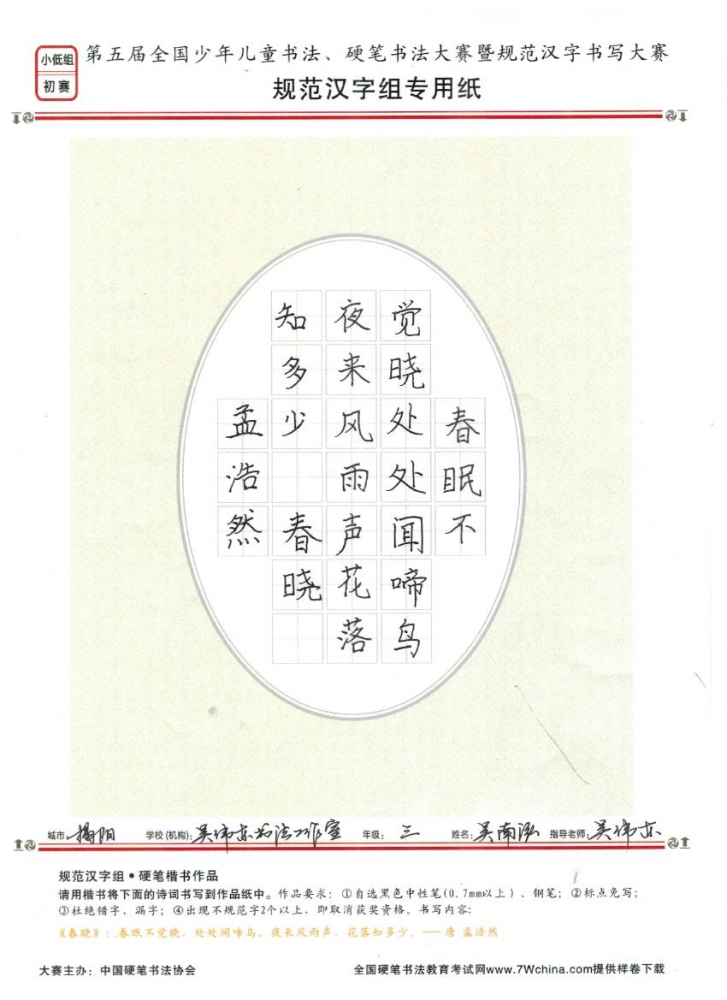 小低组
初赛
第五届全国少年儿童书法、硬笔书法大赛暨规范汉字书写大赛
规范汉字组专用纸
春眠不
觉晓处处闻啼鸟
夜来风雨声花落
知多少 春晓
孟浩然
城市：揭阳 学校(机构)：吴伟东书法工作室 年级：三 姓名：吴南泓 指导老师：吴伟东
规范汉字组•硬笔楷书作品
请用楷书将下面的诗词书写到作品纸中。作品要求：①自选黑色中性笔(0.7mm以上)、钢笔；②标点免写；
③杜绝错字、漏字；④出现不规范字2个以上，即取消获奖资格。书写内容：
《春晓》：春眠不觉晓，处处闻啼鸟。夜来风雨声，花落知多少。——唐 孟浩然
大赛主办：中国硬笔书法协会
全国硬笔书法教育考试网www.7Wchina.com提供样卷下载